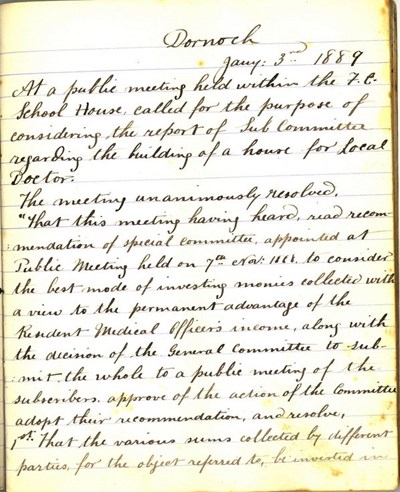 Dornoch
Jany: 3rd 1889
At a public meeting held within the F.C.
School House, called for the purpose of
considering the report of Sub Committee
regarding the building of a house for Local
Doctor.
The meeting unanimously resolved,
"That this meeting having heard, read recom-
:mendation of special committee, appointed at
Public Meeting held on 7th Nov: to consider
the best mode of investing monies collected with
a view to the permanent advantage of the
Resident Medical Officer's income, along with
the decision of the General Committee to sub-
:mit the whole to a public meeting of the
subscribers. approve of the action of the Committee
adopt their recommendation, and resolve,
1st. That the various sums collected by different
parties, for the object referred to, be invested in